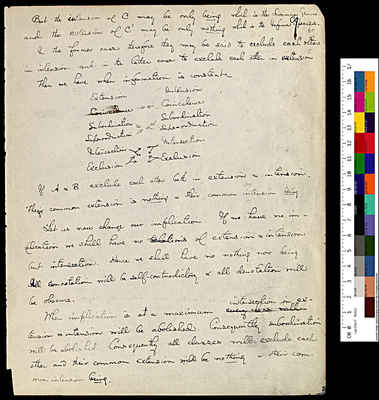 But the extension of C may be only being which is the
and the extension of C' may be only nothing which is the
In the former case therefore they may be said to exclude each other
in intension and in the latter case to exclude each other in extension
Then we have when information is constant
Extension Intension
Coincidence Coincidence
Subordination Subordination
Superordination Superordination
Intersection Intersection
Exclusion Exclusion
If A & B exclude each other both in extension & intension.
Their common extension is nothing & their common intension being
Let us now change our implication If we have no im-
plication we shall have no relations of extension & intension
but intersection. Hence we shall have no nothing nor being
All connotation will be self-contradictory & all denotation will
be absurd.
When implication is at a maximum intersection in ex-
tension & intension will be abolished Consequently subordination
will be abolished. Consequently all classes will exclude each
other and their common extension will be nothing & their com-
mon intension being.